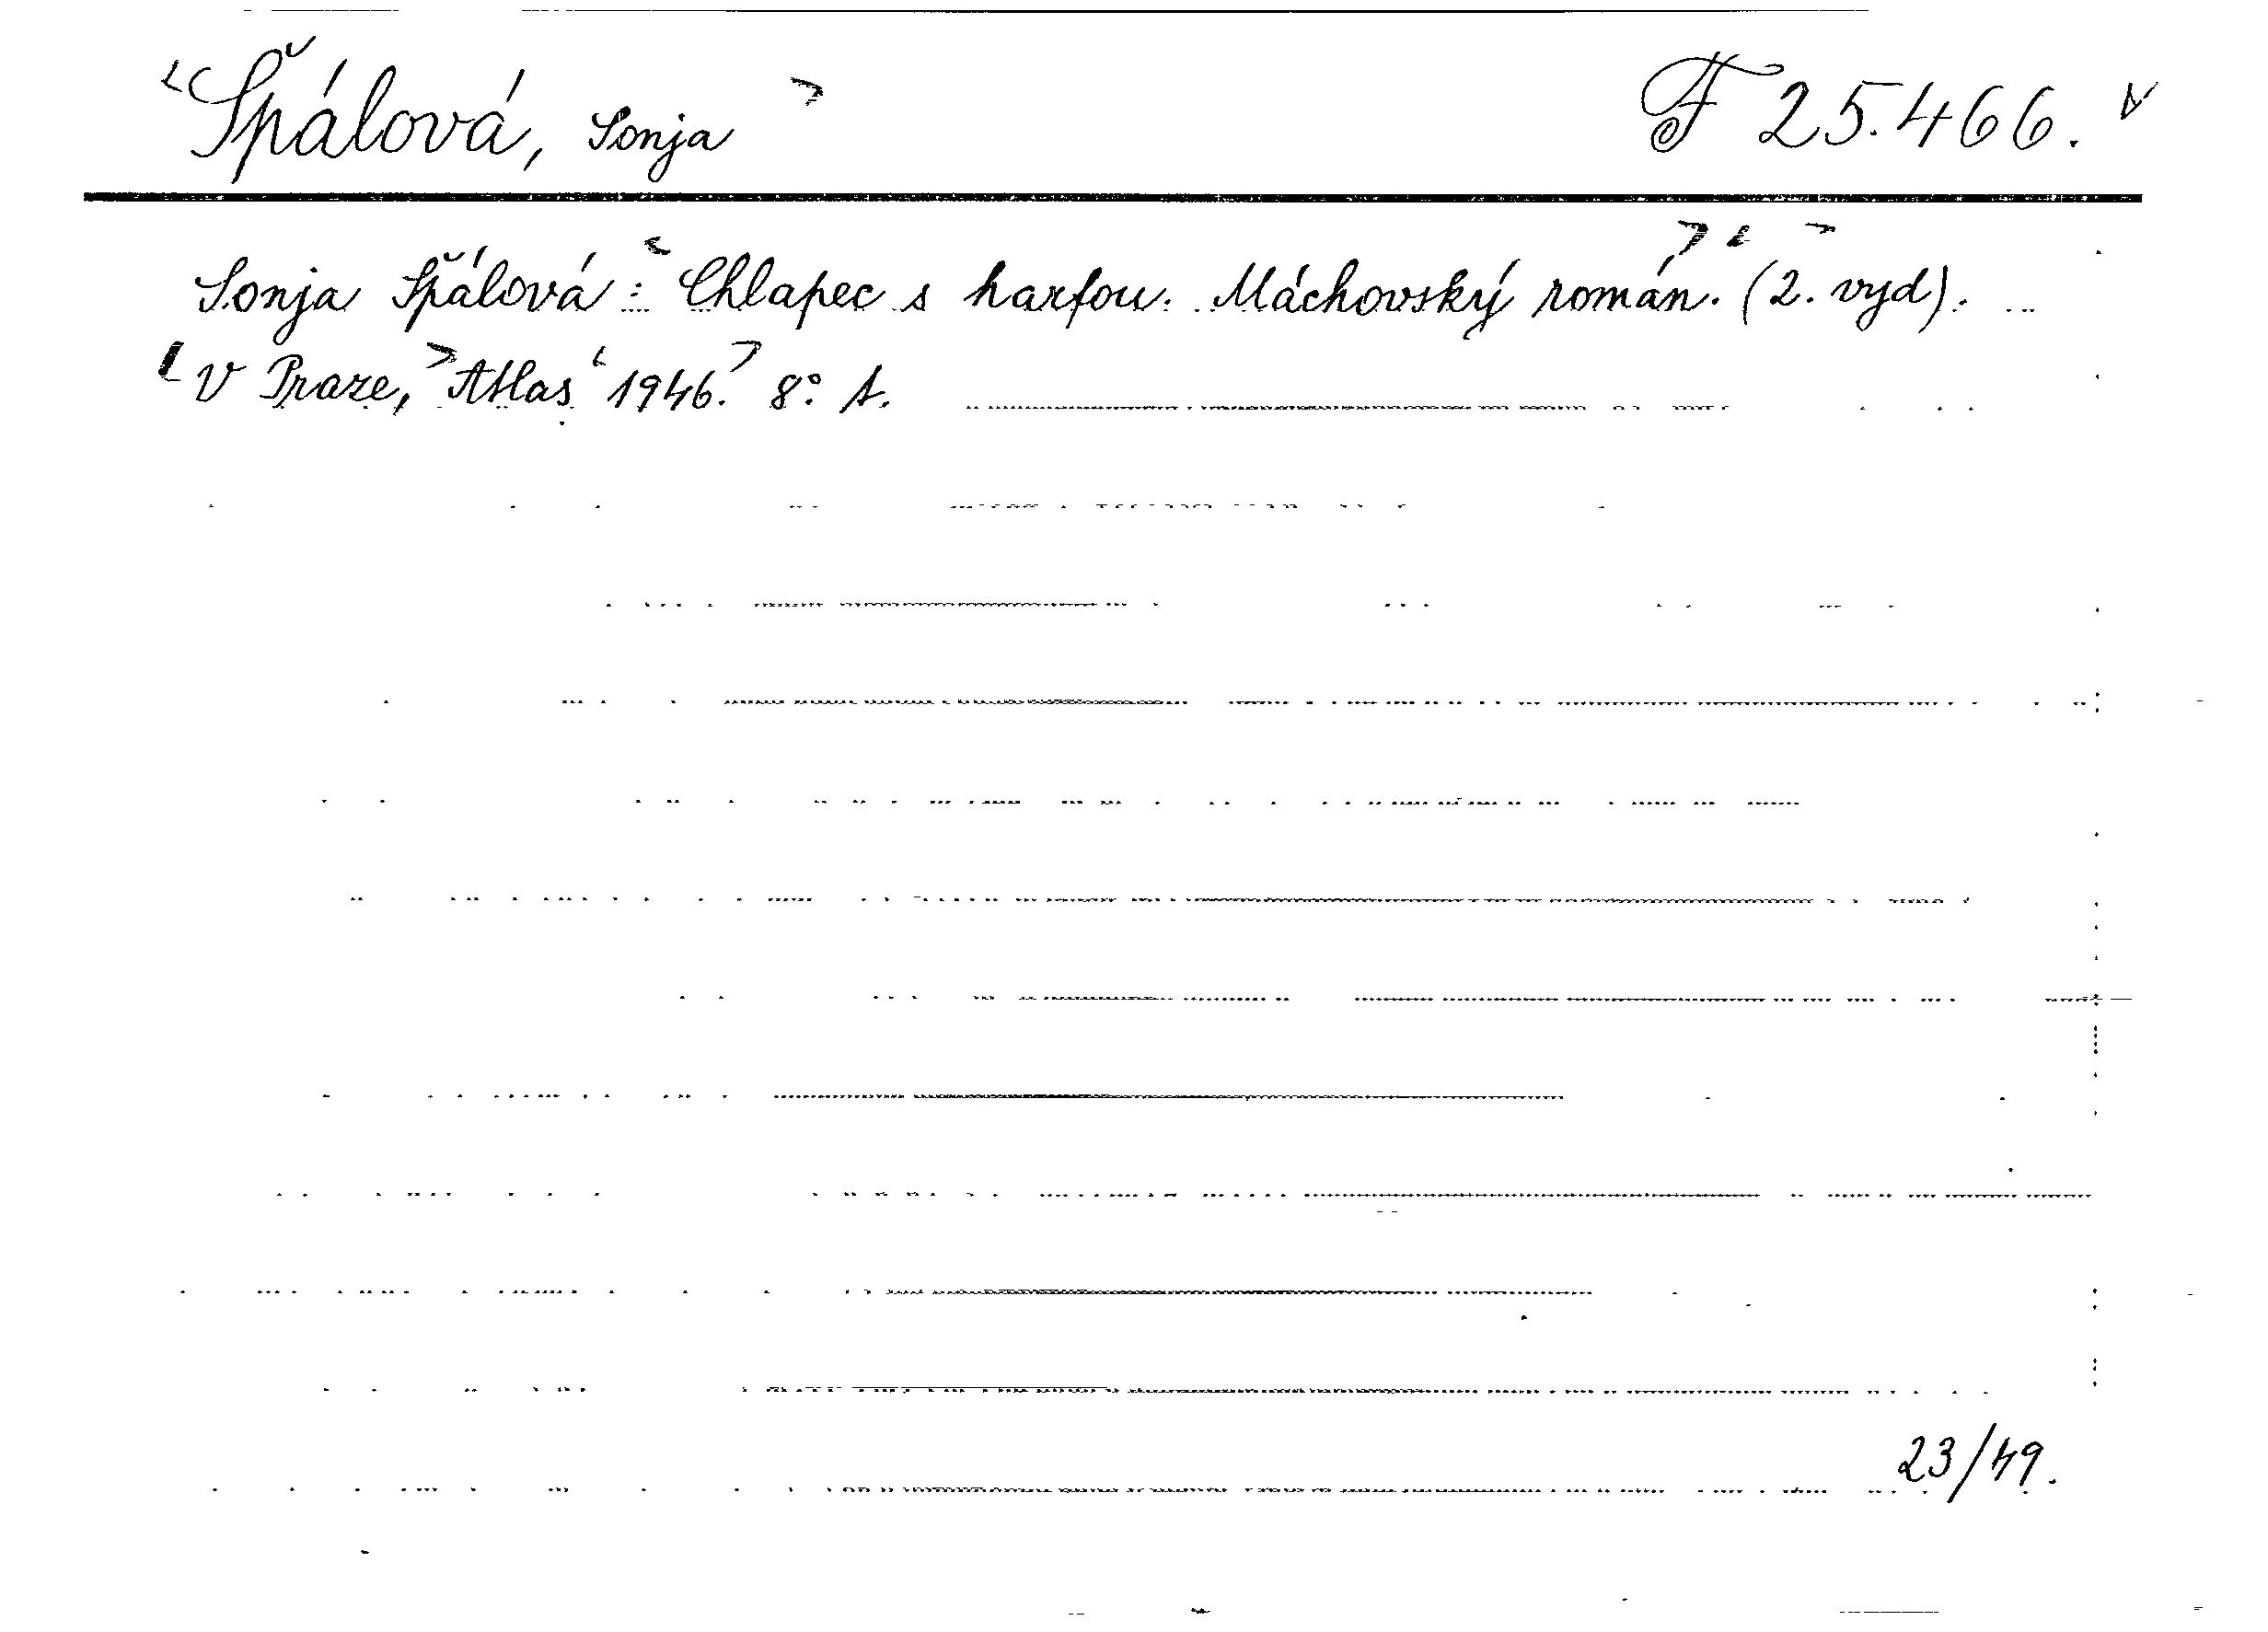 Špálová, Sonja
F 25.466.
Sonja Špálová: Chlapec s harfou. Máchovský román. (2. vyd).
V Praze, Atlas 1946. 8° A.
23/49.